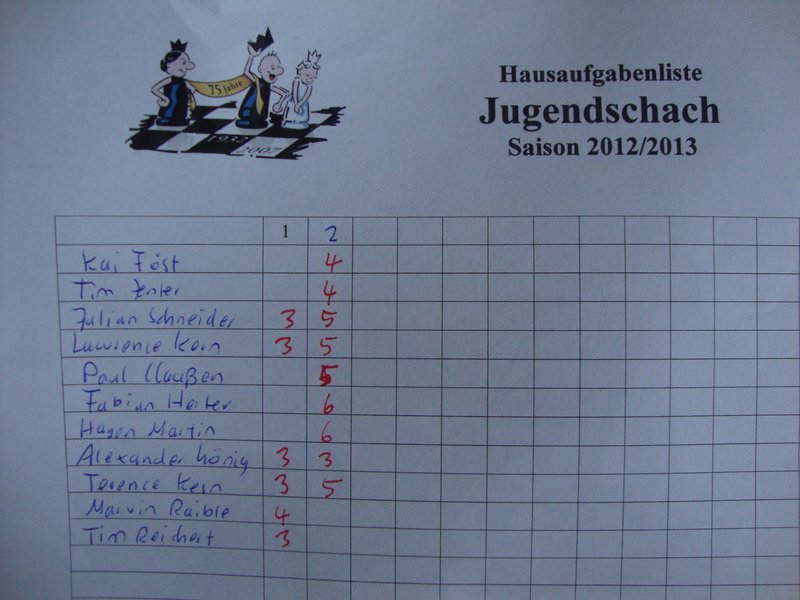 75 Jahre
1932
2007
Hausaufgabenliste
Jugendschach
Saison 2012/2013
1 2
Kai Föst 4
Tim Zenter 4
Julian Schneider 3 5
Lawrence Kern 3 5
Paul Claußen 5
Fabian Herter 6
Hagen Martin 6
Alexander König 3 3
Terence Kern 3 5
Marvin Raible 4
Tim Reichert 3